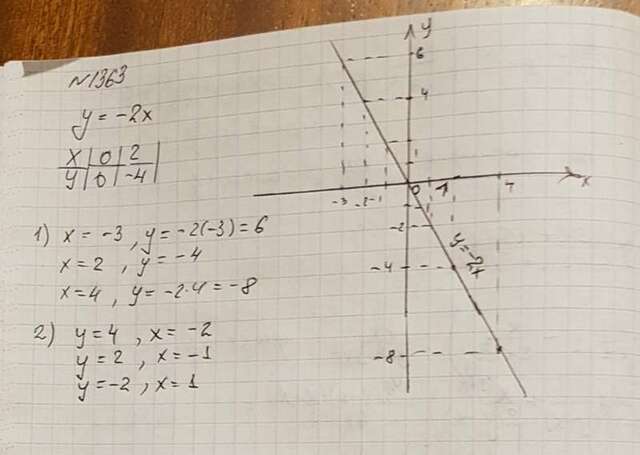 N1363
y = -2x
x | 0 | 2
y | 0 | -4
1) x = -3, y = -2(-3) = 6
x = 2, y = -4
x = 4, y = -2·4 = -8
2) y = 4, x = -2
y = 2, x = -1
y = -2, x = 1
y
6
4
-3 -2 -1 0 x
-2
-4
-8
y = -2x